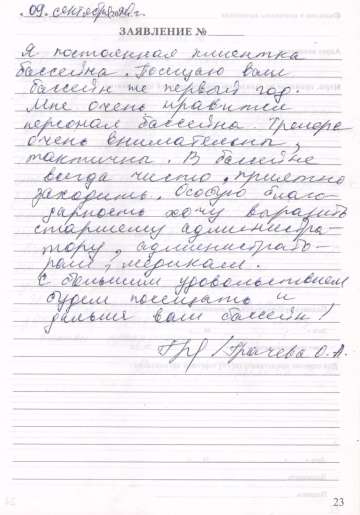 09. сентября 20г.
ЗАЯВЛЕНИЕ №
Я постоянная клиентка
бассейна. Посещаю ваш
бассейн не первый год.
Мне очень нравится
персонал бассейна. Тренера
очень внимательны,
тактичны. В бассейне
всегда чисто, приятно
заходить. Особую благо-
дарность хочу выразить
старшему администра-
тору, администрато-
рам, медикам.
С большим удовольствием
будем посещать и
дальше ваш бассейн!
/Грачева О.А.
23